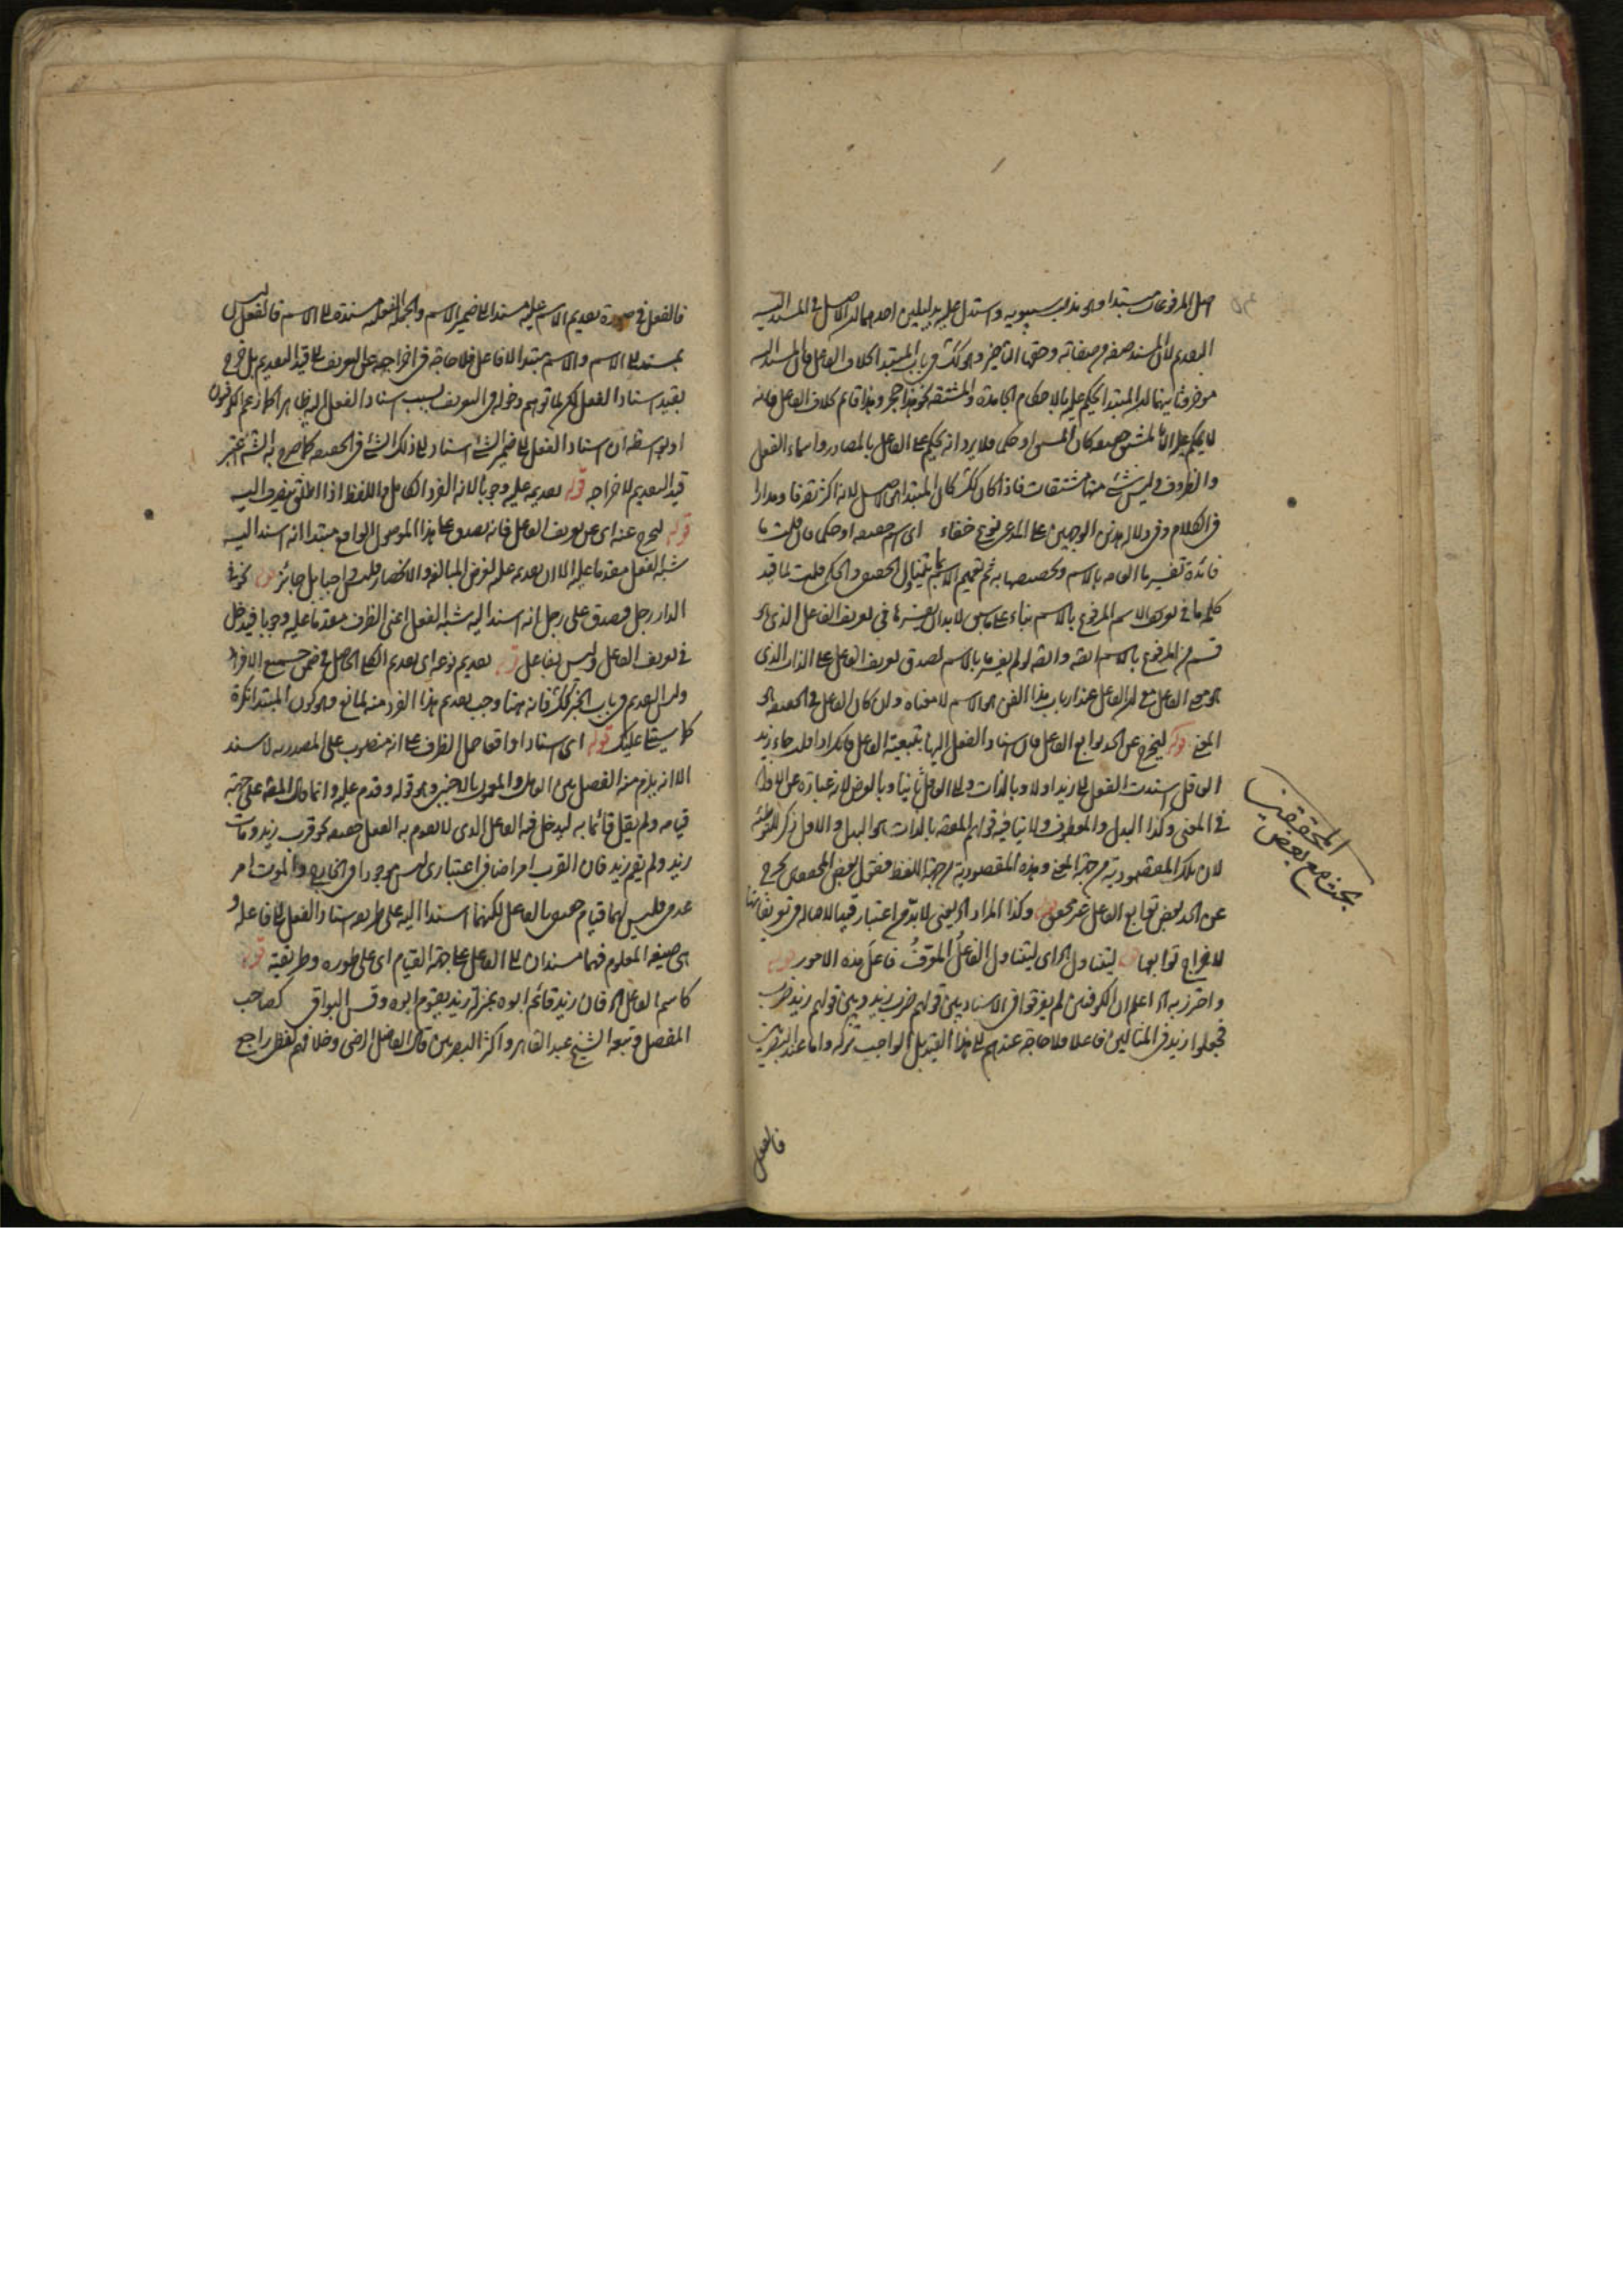 اصل المرفوعات المبتدا وهو مذهب سيبويه واستدل عليه بدليلين احدهما ان الاصل في المسند اليه
التقديم لان المسند صفة من صفاته وحقها التاخير وهو كذلك في باب المبتدا بخلاف الفاعل فان المسند اليه
موخر وثانيهما ان المبتدا يحكم عليه بالاحكام الجامدة والمشتقة نحو هذا حجر وهذا قائم بخلاف الفاعل فانه
لا يحكم عليه الا بالمشتق حقيقة كان المشتق او حكما فلا يرد انه يحكم على الفاعل بالمصادر واسماء الفعل
والظروف وليس شئ منها مشتقات فاذا كان كذلك كان المبتدا هو الاصل لانه اكثر تصرفا ومدارا
في الكلام وفي دلالة هذين الوجهين على المدعى نوع خفاء اى اسم حقيقة او حكما فان قلت ما
فائدة تفسير ما العام بالاسم وتخصيصها به ثم تعميم الاسم بما يتناول الحقيقي والحكمي قلت لما قيد
كلمة ما في تعريف الاسم المرفوع بالاسم بناء على ما سبق لابد ان يفسر ما في تعريف الفاعل الذى هو
قسم من المرفوع بالاسم البتة وايضا لو لم يفسر ما بالاسم لصدق تعريف الفاعل على الذات الذى
هو معنى الفاعل مع ان الفاعل عند ارباب هذا الفن هو الاسم لا معناه وان كان الفاعل في الحقيقة هو
المعنى قوله ليخرج عن الحد توابع الفاعل فان اسناد الفعل اليها بتبعية الفاعل فانك اذا قلت جاء زيد
العاقل اسندت الفعل الى زيد اولا وبالذات والى العاقل ثانيا وبالعرض لانه عبارة عن الاول
في المعنى وكذا البدل والمعطوف ولا ينافيه قولهم المقصود بالذات هو البدل والاول ذكر للتوطئة
لان تلك المقصودية من جهة المعنى وهذه المقصودية من جهة اللفظ فقول بعض المحققين يخرج
عن الحد بعض توابع الفاعل غير محقق قوله وكذا المراد اه يعنى لابد من اعتبار قيد الاصالة في تعريفاتها
لاخراج توابعها قوله ليتناول اه اى ليتناول الفاعل المعرف فاعل هذه الامور قوله
واحترز به اه اعلم ان الكوفيين لم يفرقوا في الاسناد بين قولهم ضرب زيد وبين قولهم زيد ضرب
فجعلوا زيد في المثالين فاعلا فلا حاجة عندهم الى هذا القيد بل الواجب تركه واما عند البصريين
فالفعل
المحققين
بحث مع بعض
فالفعل في صورة تقديم الاسم عليه مسند الى ضمير الاسم والجملة الفعلية مسندة الى الاسم فالفعل ليس
بمسند الى الاسم والاسم مبتدا لا فاعل فلا حاجة في اخراجه عن التعريف الى قيد التقديم بل خرج
بقيد اسناد الفعل لكن لما توهم دخوله في التعريف بسبب اسناد الفعل اليه ظاهرا كما زعم الكوفيون
او بواسطة ان اسناد الفعل الى ضمير الشئ اسناد الى ذلك الشئ في الحقيقة كما صرح به الشه اعتبر
قيد التقديم لاخراجه قوله تقديمه عليه وجوبا لانه الفرد الكامل واللفظ اذا اطلق ينصرف اليه
قوله ليخرج عنه اى عن تعريف الفاعل فانه يصدق على هذا الموصول الواقع مبتدا انه اسند اليه
شبه الفعل مقدما عليه الا ان تقديمه عليه لغرض المبالغة والانحصار فليس واجبا بل جائز نحو في
الدار رجل فصدق على رجل انه اسند اليه شبه الفعل اعنى الظرف مقدما عليه وجوبا فيدخل
في تعريف الفاعل وليس بفاعل قوله تقديم نوعه اى تقديم الكلى الحاصل في ضمن جميع الافراد
وليس التقديم في باب الخبر كذلك فانه هنا وجب تقديم هذا الفرد منه لمانع وهو كون المبتدا نكرة
كما سيتلى عليك قوله اى اسنادا واقعا حمل الظرف على انه منصوب على المصدرية لاسند
الا انه يلزم منه الفصل بين العامل والمعمول بالاجنبي وهو قوله وقدم عليه وانما قال المصه على جهة
قيامه ولم يقل قائما به ليدخل فيه الفاعل الذى لا يقوم به الفعل حقيقة نحو قرب زيد ومات
زيد ولم يقم زيد فان القرب امر اضافي اعتبارى ليس بموجود في الخارج والموت امر
عدمي فليس لهما قيام حقيقي بالفاعل لكنهما اسندا اليه على طريقة اسناد الفعل الى فاعله و
هى صيغة المعلوم فهما مسندان الى الفاعل على جهة القيام اى على طوره وطريقته قوله
كاسم الفاعل اه فان زيد قائم ابوه بمنزلة زيد يقوم ابوه وقس البواقي كصاحب
المفصل وتبعه الشيخ عبد القاهر واكثر البصريين قال الفاضل الرضى وخلافهم لفظي راجع